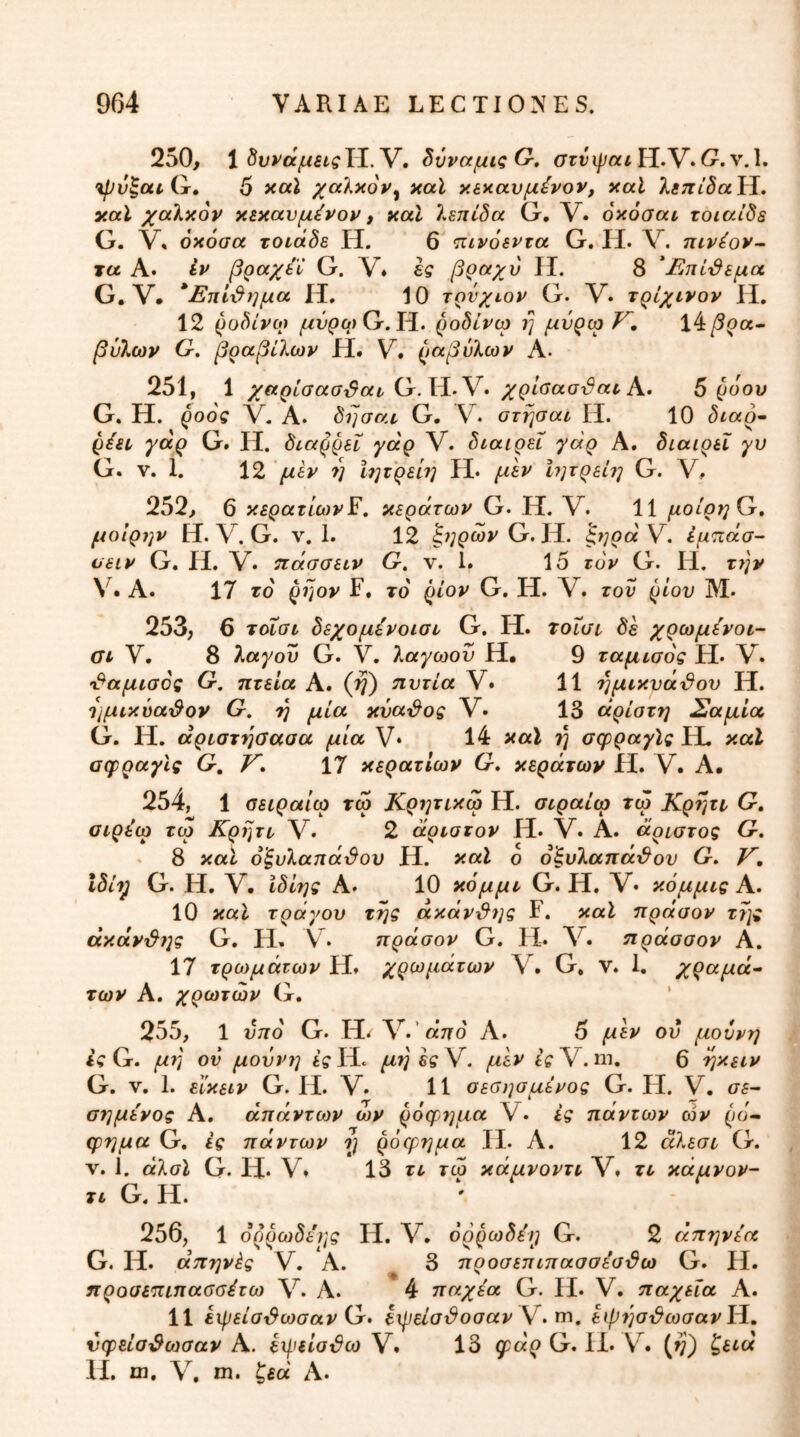 964 VARIAE LECTIONES.
250, 1 δυνάμεις H. V. δύναμις G. στύψαι H.V. G. v. l.
ψύξαι G. 5 καὶ χαλκὸν, καὶ κεκαυμένον, καὶ λεπίδα H.
καὶ χαλκὸν κεκαυμένον, καὶ λεπίδα G. V. ὁκόσαι τοιαίδε
G. V. ὁκόσα τοιάδε H. 6 πινόεντα G. H. V. πινέον-
τα A. ἐν βραχέϊ G. V. ἐς βραχὺ H. 8 Ἐπίθεμα
G. V. Ἐπίθημα H. 10 τρύχιον G. V. τρίχινον H.
12 ῥοδίνῳ μύρῳ G. H. ῥοδίνῳ ἢ μύρῳ V. 14 βρα-
βύλων G. βραβίλων H. V. ῥαβύλων A.
251, 1 χαρίσασθαι G. H. V. χρίσασθαι A. 5 ῥόου
G. H. ῥοὸς V. A. δῆσαι G. V. στῆσαι H. 10 διαῤ-
ῥέει γὰρ G. H. διαῤῥεῖ γὰρ V. διαιρεῖ γὰρ A. διαιρεῖ γυ
G. v. l. 12 μὲν ἢ ἰητρείη H. μὲν ἰητρείη G. V.
252, 6 κερατίων F. κεράτων G. H. V. 11 μοίρη G.
μοίρην H. V. G. v. l. 12 ξηρῶν G. H. ξηρὰ V. ἐμπάσ-
σειν G. H. V. πάσσειν G. v. l. 15 τὸν G. H. τὴν
V. A. 17 τὸ ῥῆον F. τὸ ῥίον G. H. V. τοῦ ῥίου M.
253, 6 τοῖσι δεχομένοισι G. H. τοῖσι δὲ χρωμένοι-
σι V. 8 λαγοῦ G. V. λαγωοῦ H. 9 ταμισὸς H. V.
θαμισὸς G. πτεία A. (ἢ) πυτία V. 11 ἡμικυάθου H.
ἡμικύαθον G. ἢ μία κύαθος V. 13 ἀρίστη Σαμία
G. H. ἀριστήσασα μία V. 14 καὶ ἡ σφραγὶς H. καὶ
σφραγὶς G. V. 17 κερατίων G. κεράτων H. V. A.
254, 1 σειραίῳ τῷ Κρητικῷ H. σιραίῳ τῷ Κρῆτι G.
σιρέῳ τῷ Κρῆτι V. 2 ἄριστον H. V. A. ἄριστος G.
8 καὶ ὀξυλαπάθου H. καὶ ὁ ὀξυλαπάθου G. V.
ἰδίῃ G. H. V. ἰδίης A. 10 κόμμι G. H. V. κόμμις A.
10 καὶ τράγου τῆς ἀκάνθης F. καὶ πράσον τῆς
ἀκάνθης G. H. V. πράσον G. H. V. πράσσον A.
17 τρωμάτων H. χρωμάτων V. G. v. l. χραμά-
των A. χρωτῶν G.
255, 1 ὑπὸ G. H. V. ἀπὸ A. 5 μὲν οὐ μούνη
ἐς G. μὴ οὐ μούνη ἐς H. μὴ ἐς V. μὲν ἐς V. m. 6 ἥκειν
G. v. l. εἴκειν G. H. V. 11 σεσησμένος G. H. V. σε-
σημένος A. ἁπάντων ὦν ῥόφημα V. ἐς πάντων ὦν ῥό-
φημα G. ἐς πάντων ἢ ῥόφημα H. A. 12 ἅλεσι G.
v. l. ἁλσὶ G. H. V. 13 τι τῷ κάμνοντι V. τι κάμνον-
τι G. H.
256, 1 ὀῤῥωδέης H. V. ὀῤῥωδέη G. 2 ἀπηνέα
G. H. ἀπηνὲς V. A. 3 προσεπιπασσέσθω G. H.
προσεπιπασσέτω V. A. 4 παχέα G. H. V. παχεῖα A.
11 ἑψείσθωσαν G. ἑψείσθοσαν V. m. ἑψήσθωσαν H.
ὑφείσθωσαν A. ἑψείσθω V. 13 φὰρ G. H. V. (ἢ) ζειὰ
H. m. V. m. ζεὰ A.